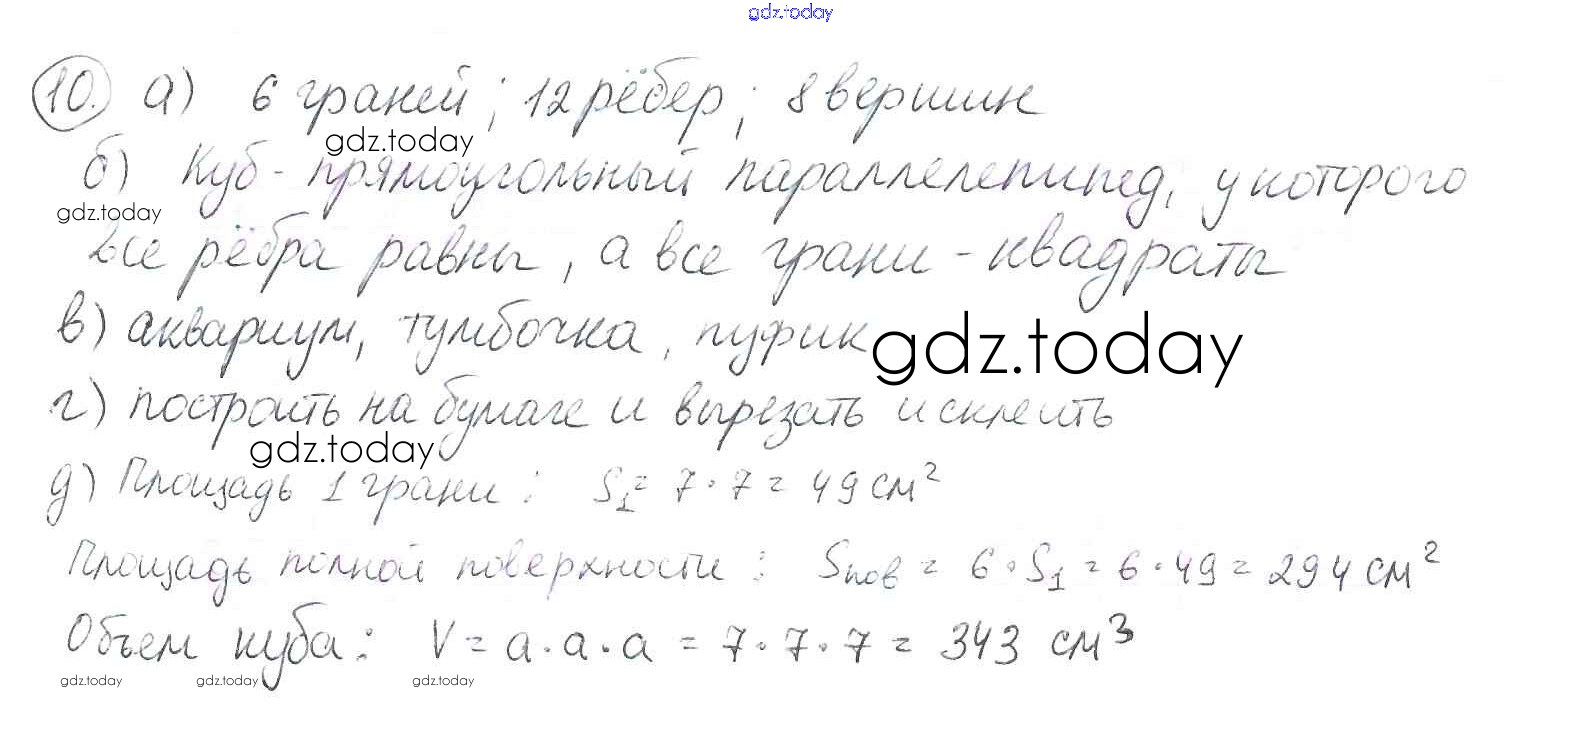 gdz.today
10. а) 6 граней; 12 рёбер; 8 вершин
gdz.today
б) Куб - прямоугольный параллелепипед, у которого
gdz.today
все рёбра равны, а все грани - квадраты
в) аквариум, тумбочка, пуфик
gdz.today
г) построить на бумаге и вырезать и склеить
gdz.today
д) Площадь 1 грани: S₁ = 7 · 7 = 49 см²
Площадь полной поверхности: Sпов = 6 · S₁ = 6 · 49 = 294 см²
Объем куба: V = a · a · a = 7 · 7 · 7 = 343 см³
gdz.today gdz.today gdz.today